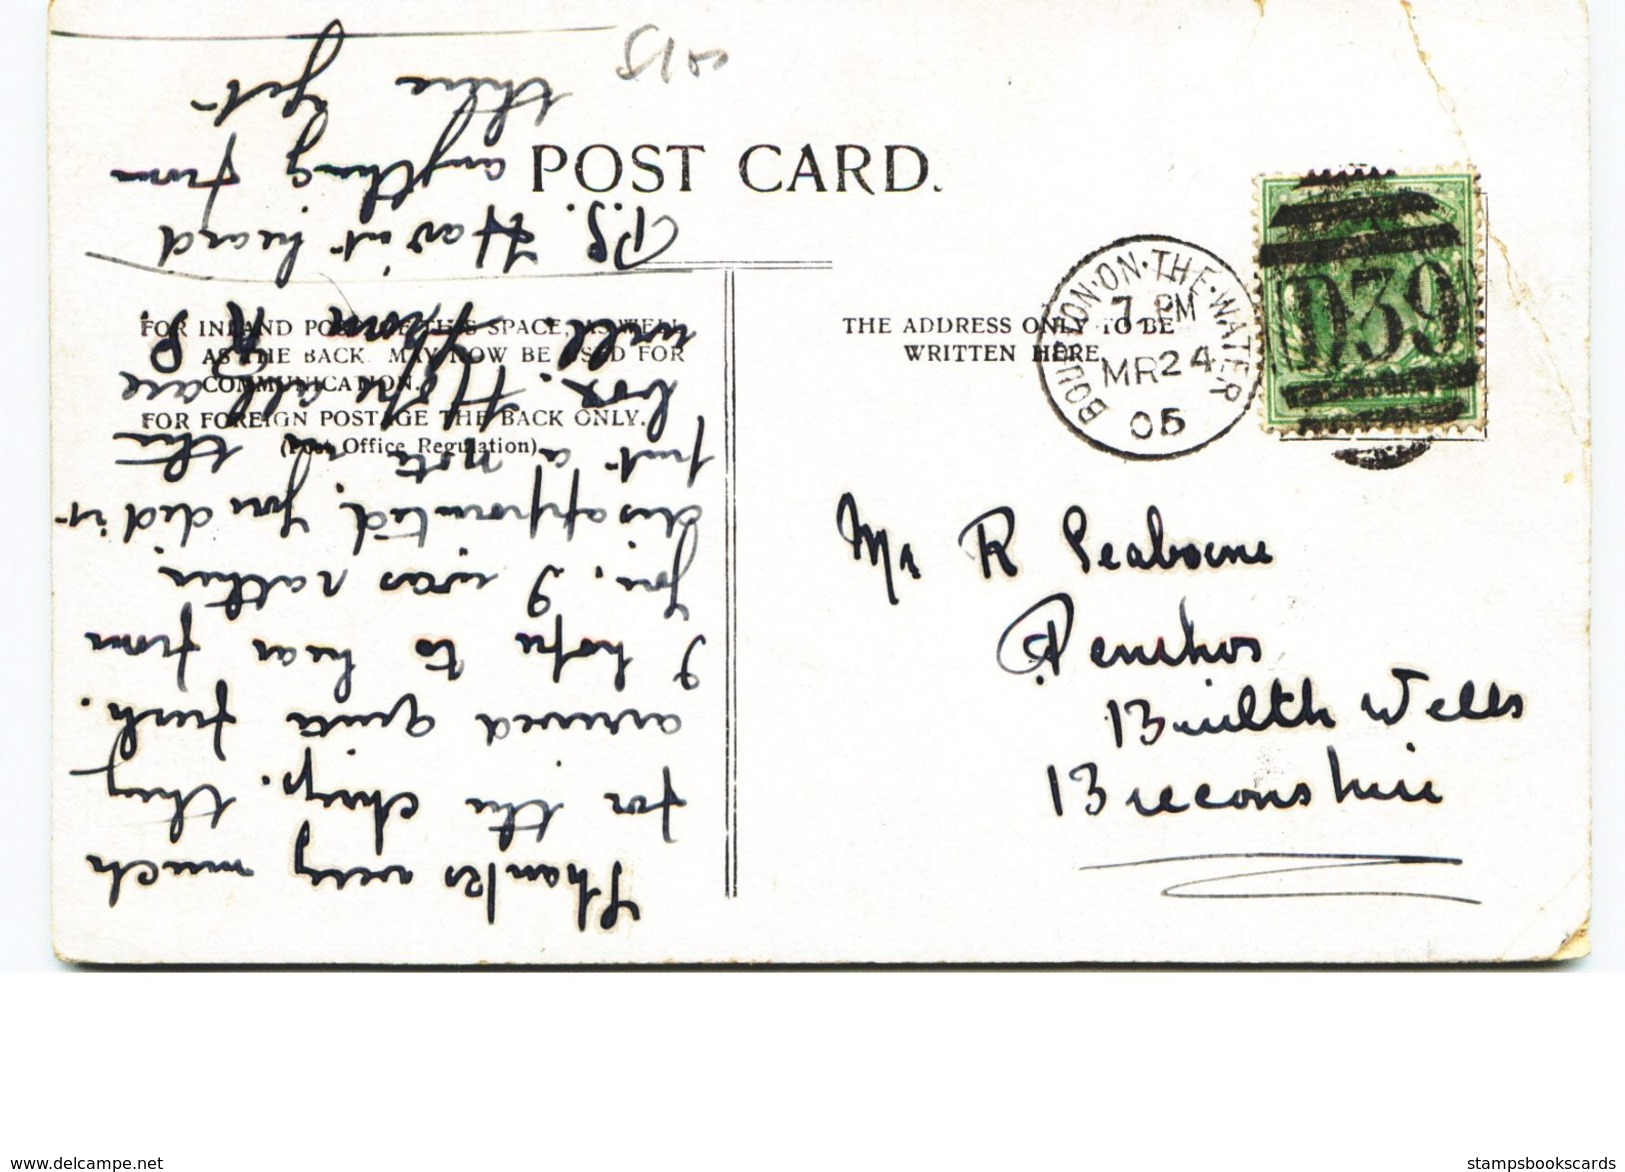 POST CARD.
FOR INLAND POSTAGE THIS SPACE, AS WELL
AS THE BACK MAY NOW BE USED FOR
COMMUNICATION.
FOR FOREIGN POSTAGE THE BACK ONLY.
(Post Office Regulation)
THE ADDRESS ONLY TO BE
WRITTEN HERE.
BOURTON·ON·THE·WATER
7 PM
MR 24
05
D39
Mr R Seaborne
Penrhos
Builth Wells
Breconshire
Thanks very much
for the chip. they
arrived quite fresh.
I hope to hear from
you. I was rather
disappointed, you did'nt
put a note in the
box. Hope all are
well from R S
P.S. Hav'nt heard
anything from
there yet
www.delcampe.net
stampsbookscards